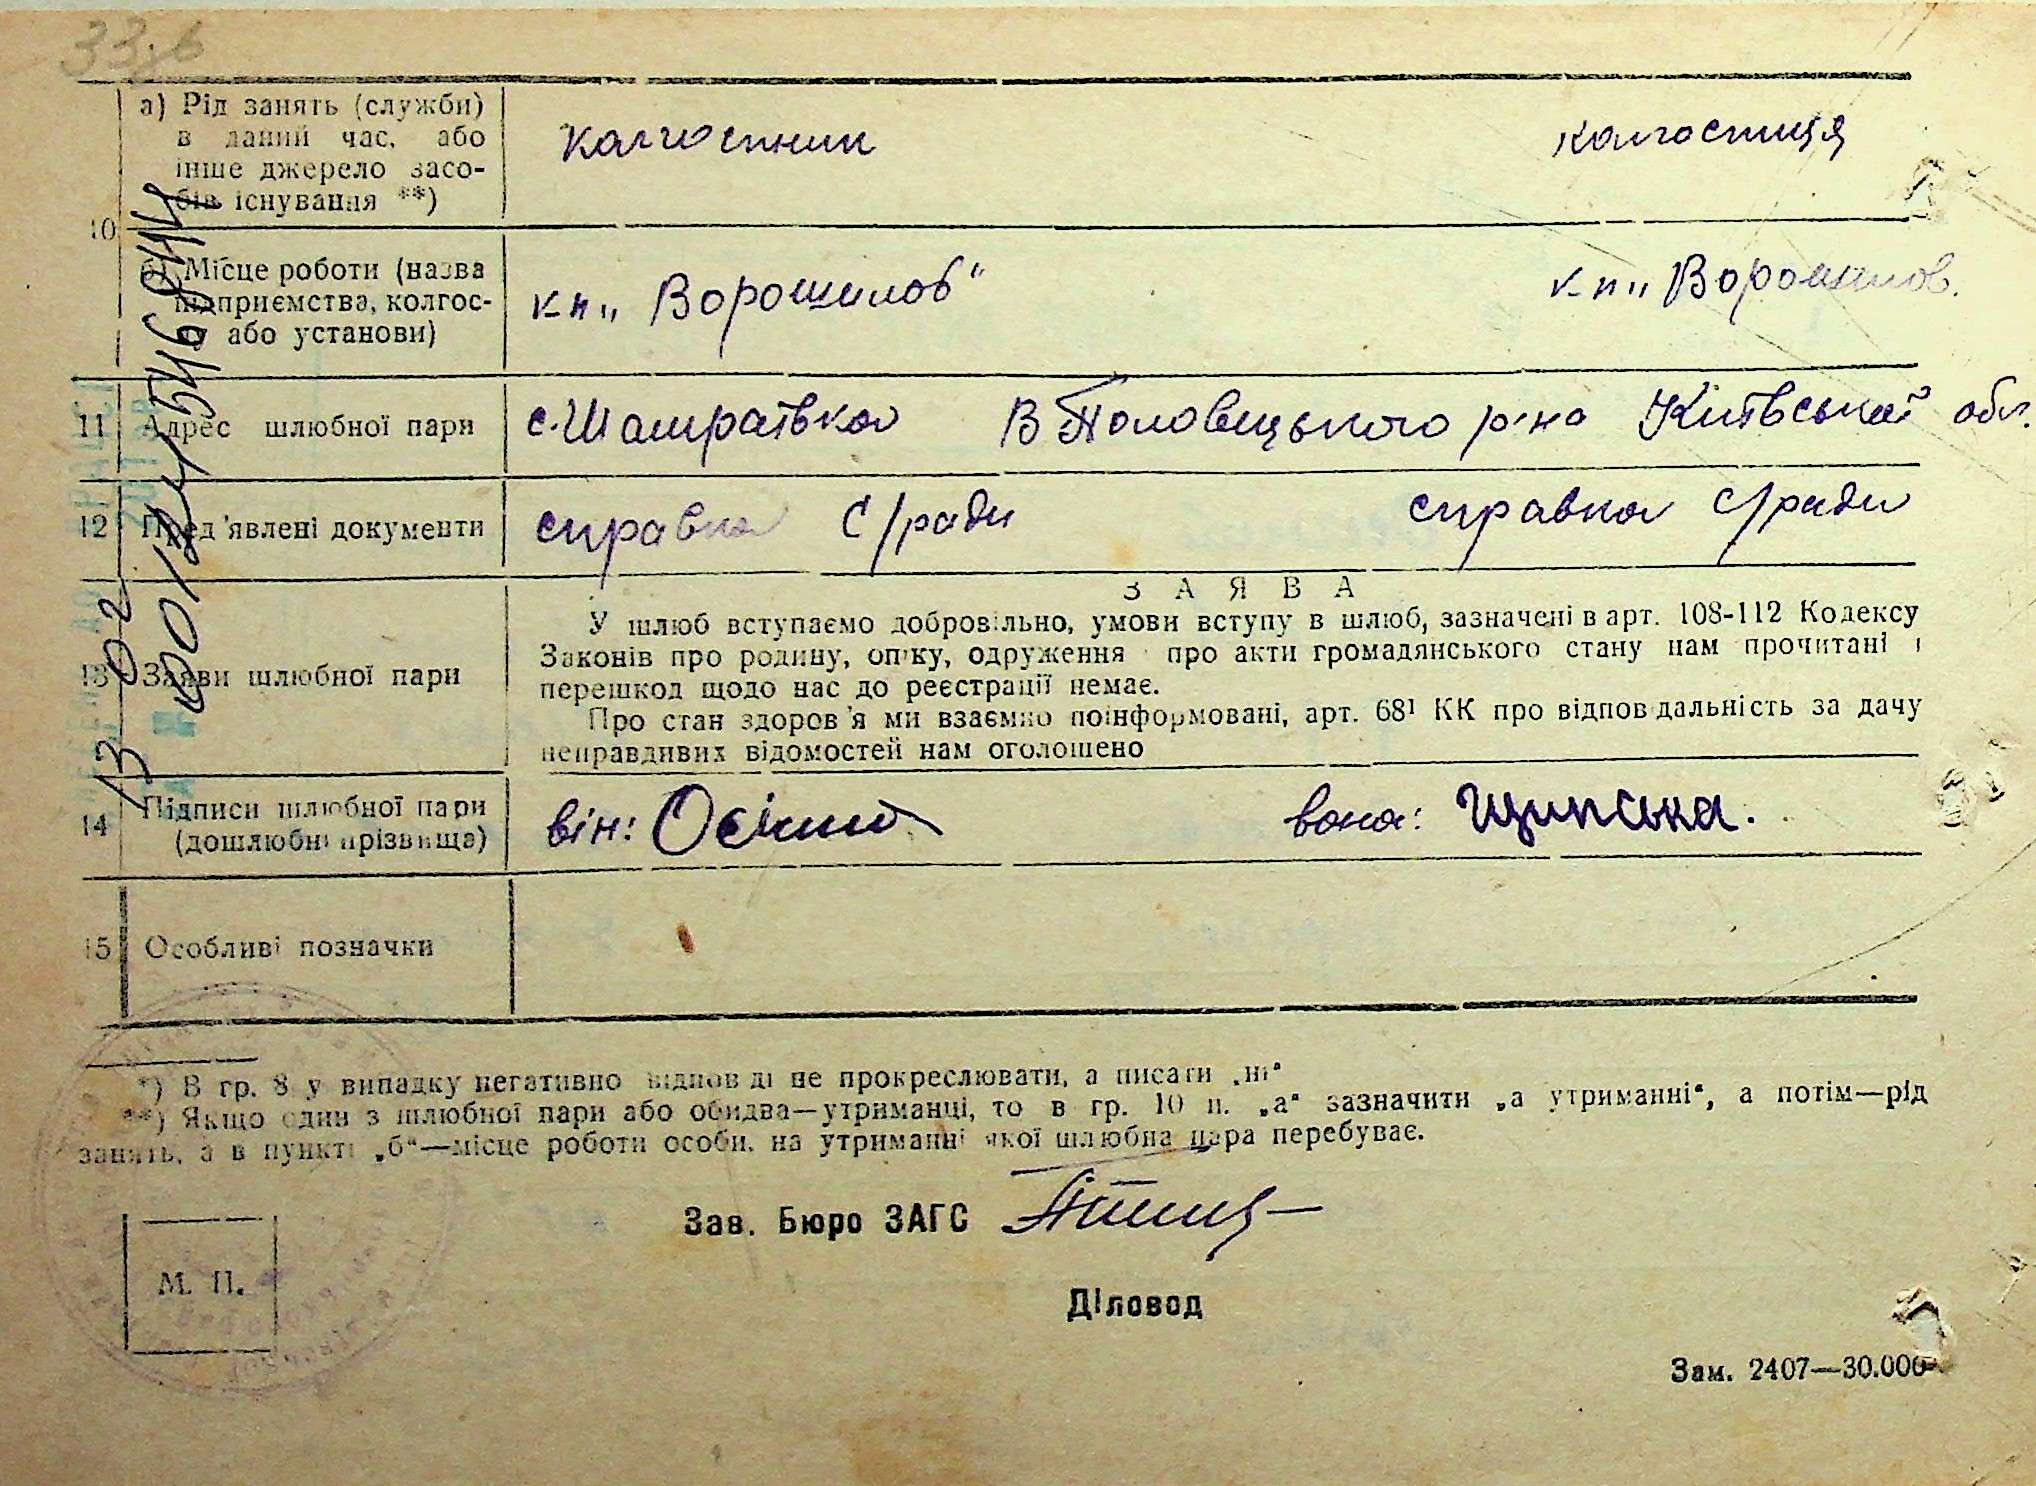 33
а) Рід занять (служби)
в даний час, або
інше джерело засо-
бів існування **)
колгоспник
колгоспиця
10
б) Місце роботи (назва
підприємства, колгос-
пу або установи)
к-п „Ворошилов"
к-п „Ворошилов.
11 Адрес шлюбної пари
с. Шамраївка В Половецького р-на Київської обл.
12 Пред'явлені документи
справка с/ради
справка с/ради
13 Заяви шлюбної пари
ЗАЯВА
У шлюб вступаємо добровільно, умови вступу в шлюб, зазначені в арт. 108-112 Кодексу
Законів про родину, опіку, одруження і про акти громадянського стану нам прочитані і
перешкод щодо нас до реєстрації немає.
Про стан здоров'я ми взаємно поінформовані, арт. 68¹ КК про відповідальність за дачу
неправдивих відомостей нам оголошено
14 Підписи шлюбної пари
(дошлюбні прізвища)
він:
вона: Щипська.
15 Особливі позначки
*) В гр. 8 у випадку негативної відповіді не прокреслювати, а писати „ні"
**) Якщо один з шлюбної пари або обидва—утриманці, то в гр. 10 п. „а" зазначити „а утриманні", а потім—рід
занять, а в пункті „б"—місце роботи особи, на утриманні якої шлюбна пара перебуває.
Зав. Бюро ЗАГС
М. П.
Діловод
Зам. 2407—30.000